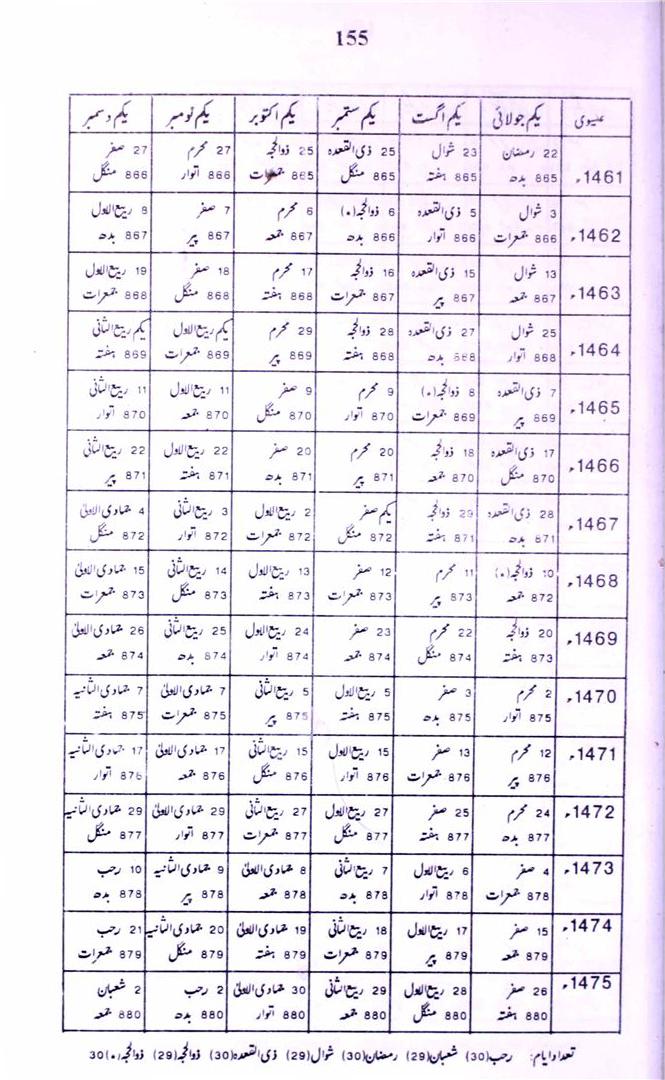 155
عیسوی یکم جولائی یکم اگست یکم ستمبر یکم اکتوبر یکم نومبر یکم دسمبر
22 رمضان 23 شوال 25 ذی القعدہ 25 ذوالحجہ 27 محرم 27 صفر
1461ء 865 بدھ 865 ہفتہ 865 منگل 865 جمعرات 866 اتوار 866 منگل
3 شوال 5 ذی القعدہ 6 ذوالحجہ(٭) 6 محرم 7 صفر 8 ربیع الاول
1462ء 866 جمعرات 866 اتوار 866 بدھ 867 جمعہ 867 پیر 867 بدھ
13 شوال 15 ذی القعدہ 16 ذوالحجہ 17 محرم 18 صفر 19 ربیع الاول
1463ء 867 جمعہ 867 پیر 867 جمعرات 868 ہفتہ 868 منگل 868 جمعرات
25 شوال 27 ذی القعدہ 28 ذوالحجہ 29 محرم یکم ربیع الاول یکم ربیع الثانی
1464ء 868 اتوار 868 بدھ 868 ہفتہ 869 پیر 869 جمعرات 869 ہفتہ
7 ذی القعدہ 8 ذوالحجہ(٭) 9 محرم 9 صفر 11 ربیع الاول 11 ربیع الثانی
1465ء 869 پیر 869 جمعرات 870 اتوار 870 منگل 870 جمعہ 870 اتوار
17 ذی القعدہ 18 ذوالحجہ 20 محرم 20 صفر 22 ربیع الاول 22 ربیع الثانی
1466ء 870 منگل 870 جمعہ 871 پیر 871 بدھ 871 ہفتہ 871 پیر
28 ذی القعدہ 29 ذوالحجہ یکم صفر 2 ربیع الاول 3 ربیع الثانی 4 جمادی الاولیٰ
1467ء 871 بدھ 871 ہفتہ 872 منگل 872 جمعرات 872 اتوار 872 منگل
10 ذوالحجہ(٭) 11 محرم 12 صفر 13 ربیع الاول 14 ربیع الثانی 15 جمادی الاولیٰ
1468ء 872 جمعہ 873 پیر 873 جمعرات 873 ہفتہ 873 منگل 873 جمعرات
20 ذوالحجہ 22 محرم 23 صفر 24 ربیع الاول 25 ربیع الثانی 26 جمادی الاولیٰ
1469ء 873 ہفتہ 874 منگل 874 جمعہ 874 اتوار 874 بدھ 874 جمعہ
2 محرم 3 صفر 5 ربیع الاول 5 ربیع الثانی 7 جمادی الاولیٰ 7 جمادی الثانیہ
1470ء 875 اتوار 875 بدھ 875 ہفتہ 875 پیر 875 جمعرات 875 ہفتہ
12 محرم 13 صفر 15 ربیع الاول 15 ربیع الثانی 17 جمادی الاولیٰ 17 جمادی الثانیہ
1471ء 876 پیر 876 جمعرات 876 اتوار 876 منگل 876 جمعہ 876 اتوار
24 محرم 25 صفر 27 ربیع الاول 27 ربیع الثانی 29 جمادی الاولیٰ 29 جمادی الثانیہ
1472ء 877 بدھ 877 ہفتہ 877 منگل 877 جمعرات 877 اتوار 877 منگل
4 صفر 6 ربیع الاول 7 ربیع الثانی 8 جمادی الاولیٰ 9 جمادی الثانیہ 10 رجب
1473ء 878 جمعرات 878 اتوار 878 بدھ 878 جمعہ 878 پیر 878 بدھ
15 صفر 17 ربیع الاول 18 ربیع الثانی 19 جمادی الاولیٰ 20 جمادی الثانیہ 21 رجب
1474ء 879 جمعہ 879 پیر 879 جمعرات 879 ہفتہ 879 منگل 879 جمعرات
26 صفر 28 ربیع الاول 29 ربیع الثانی 30 جمادی الاولیٰ 2 رجب 2 شعبان
1475ء 880 ہفتہ 880 منگل 880 جمعہ 880 اتوار 880 بدھ 880 جمعہ
تعداد ایام: رجب(30) شعبان(29) رمضان(30) شوال(29) ذی القعدہ(30) ذوالحجہ(29) ذوالحجہ(٭)30